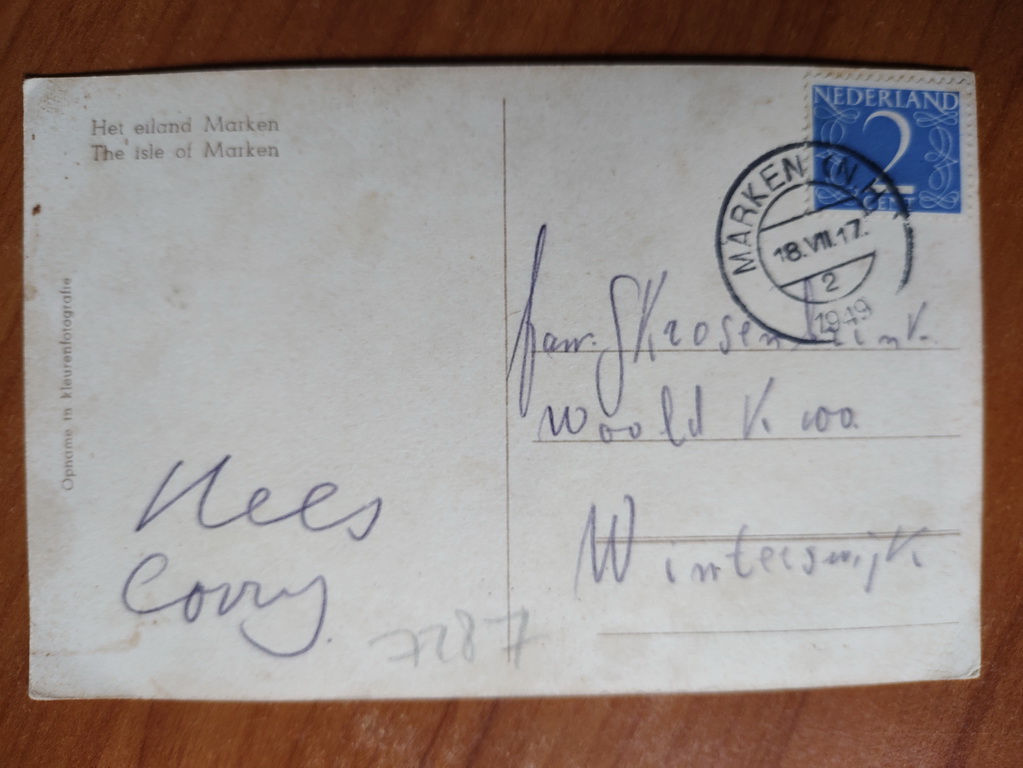 Het eiland Marken
The isle of Marken
NEDERLAND
2
CENT
MARKEN (N.H.)
18.VIII.17.
2
1949
Opname in kleurenfotografie
Fam. G Krosenbrink.
Woold K 100
Winterswijk
Kees
Corry.
7287